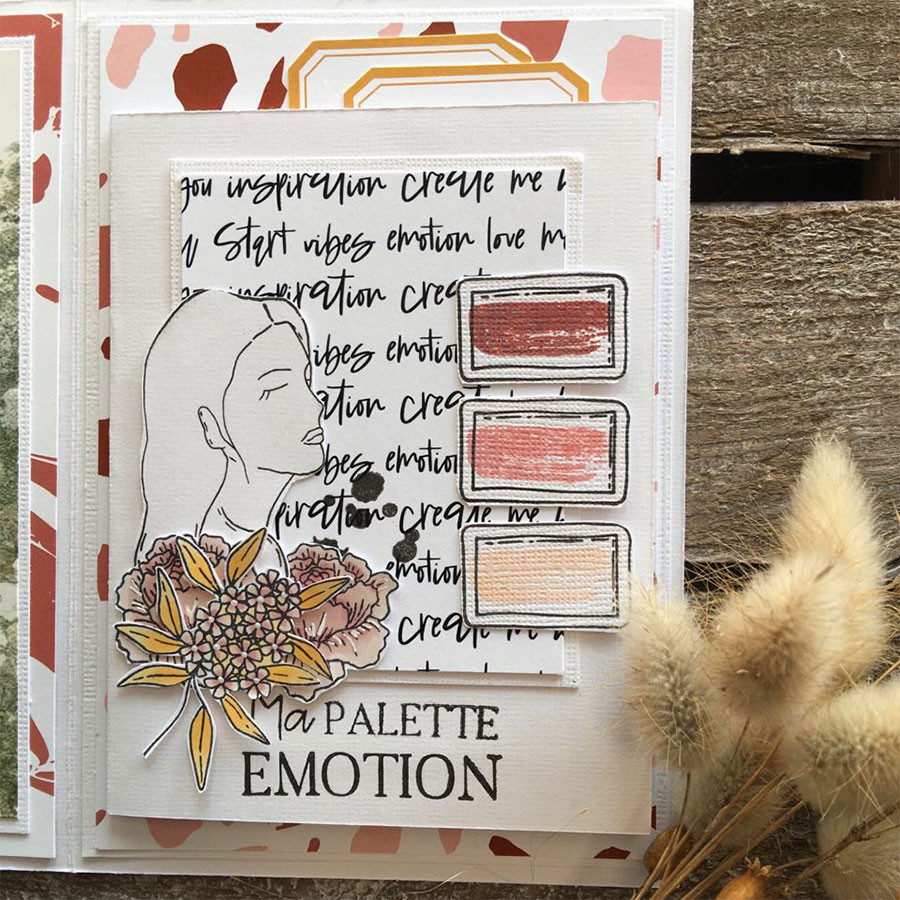 you inspiration create me
Start vibes emotion love m
inspiration crea
vibes emotion
ation crea
ibes emotion
piration create me
emotion
create me
Ma PALETTE
EMOTION